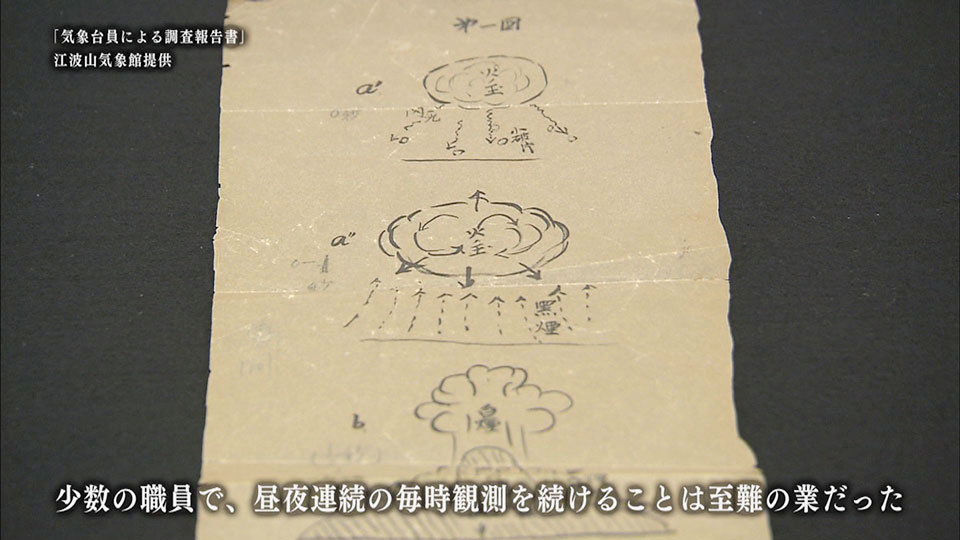 「気象台員による調査報告書」
江波山気象館提供
第一図
火
玉
a'
0秒
閃光
a"
火
玉
黒
煙
b
白煙
少数の職員で、昼夜連続の毎時観測を続けることは至難の業だった